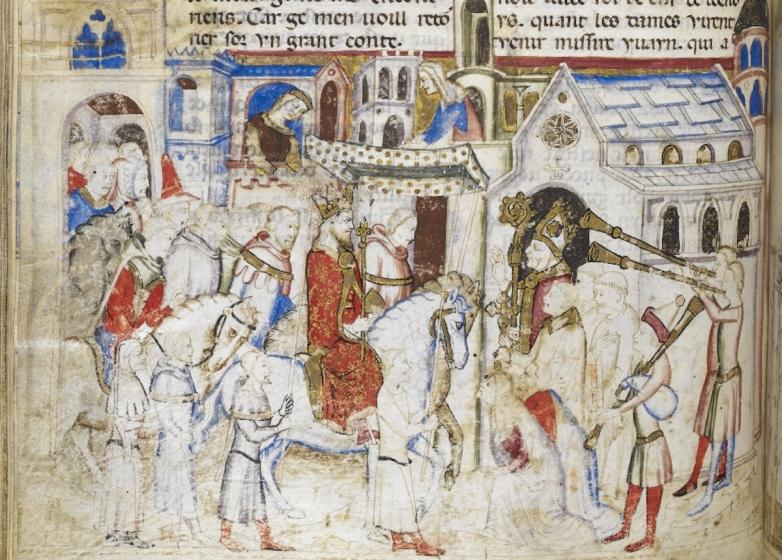 riens. Car ge men uoill reto
ner sor vn grant conte.
ys. quant les dames virent
venir missire yuayn. qui a